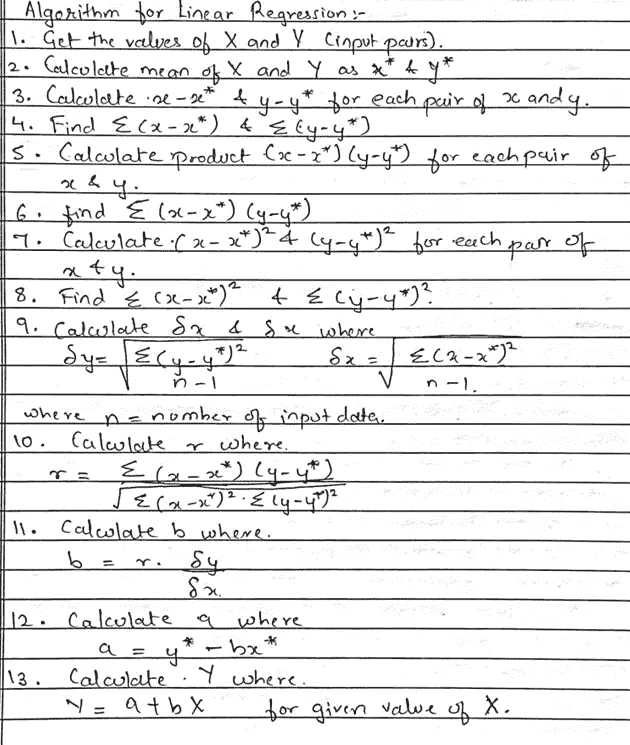 Algorithm for Linear Regression :-
1. Get the values of X and Y (input pairs).
2. Calculate mean of X and Y as x* & y*
3. Calculate x - x* & y - y* for each pair of x and y.
4. Find Σ (x - x*) & Σ (y - y*)
5. Calculate product (x - x*) (y - y*) for each pair of
x & y.
6. find Σ (x - x*) (y - y*)
7. Calculate (x - x*)² & (y - y*)² for each pair of
x & y.
8. Find Σ (x - x*)² & Σ (y - y*)².
9. Calculate δx & δx where
δy = √ Σ(y - y*)² / n - 1 δx = √ Σ(x - x*)² / n - 1.
where n = number of input data.
10. Calculate r where.
r = Σ (x - x*) (y - y*) / √ Σ (x - x*)² . Σ (y - y*)²
11. Calculate b where.
b = r. δy / δx.
12. Calculate a where
a = y* - bx*
13. Calculate . Y where.
Y = a + b X for given value of X.